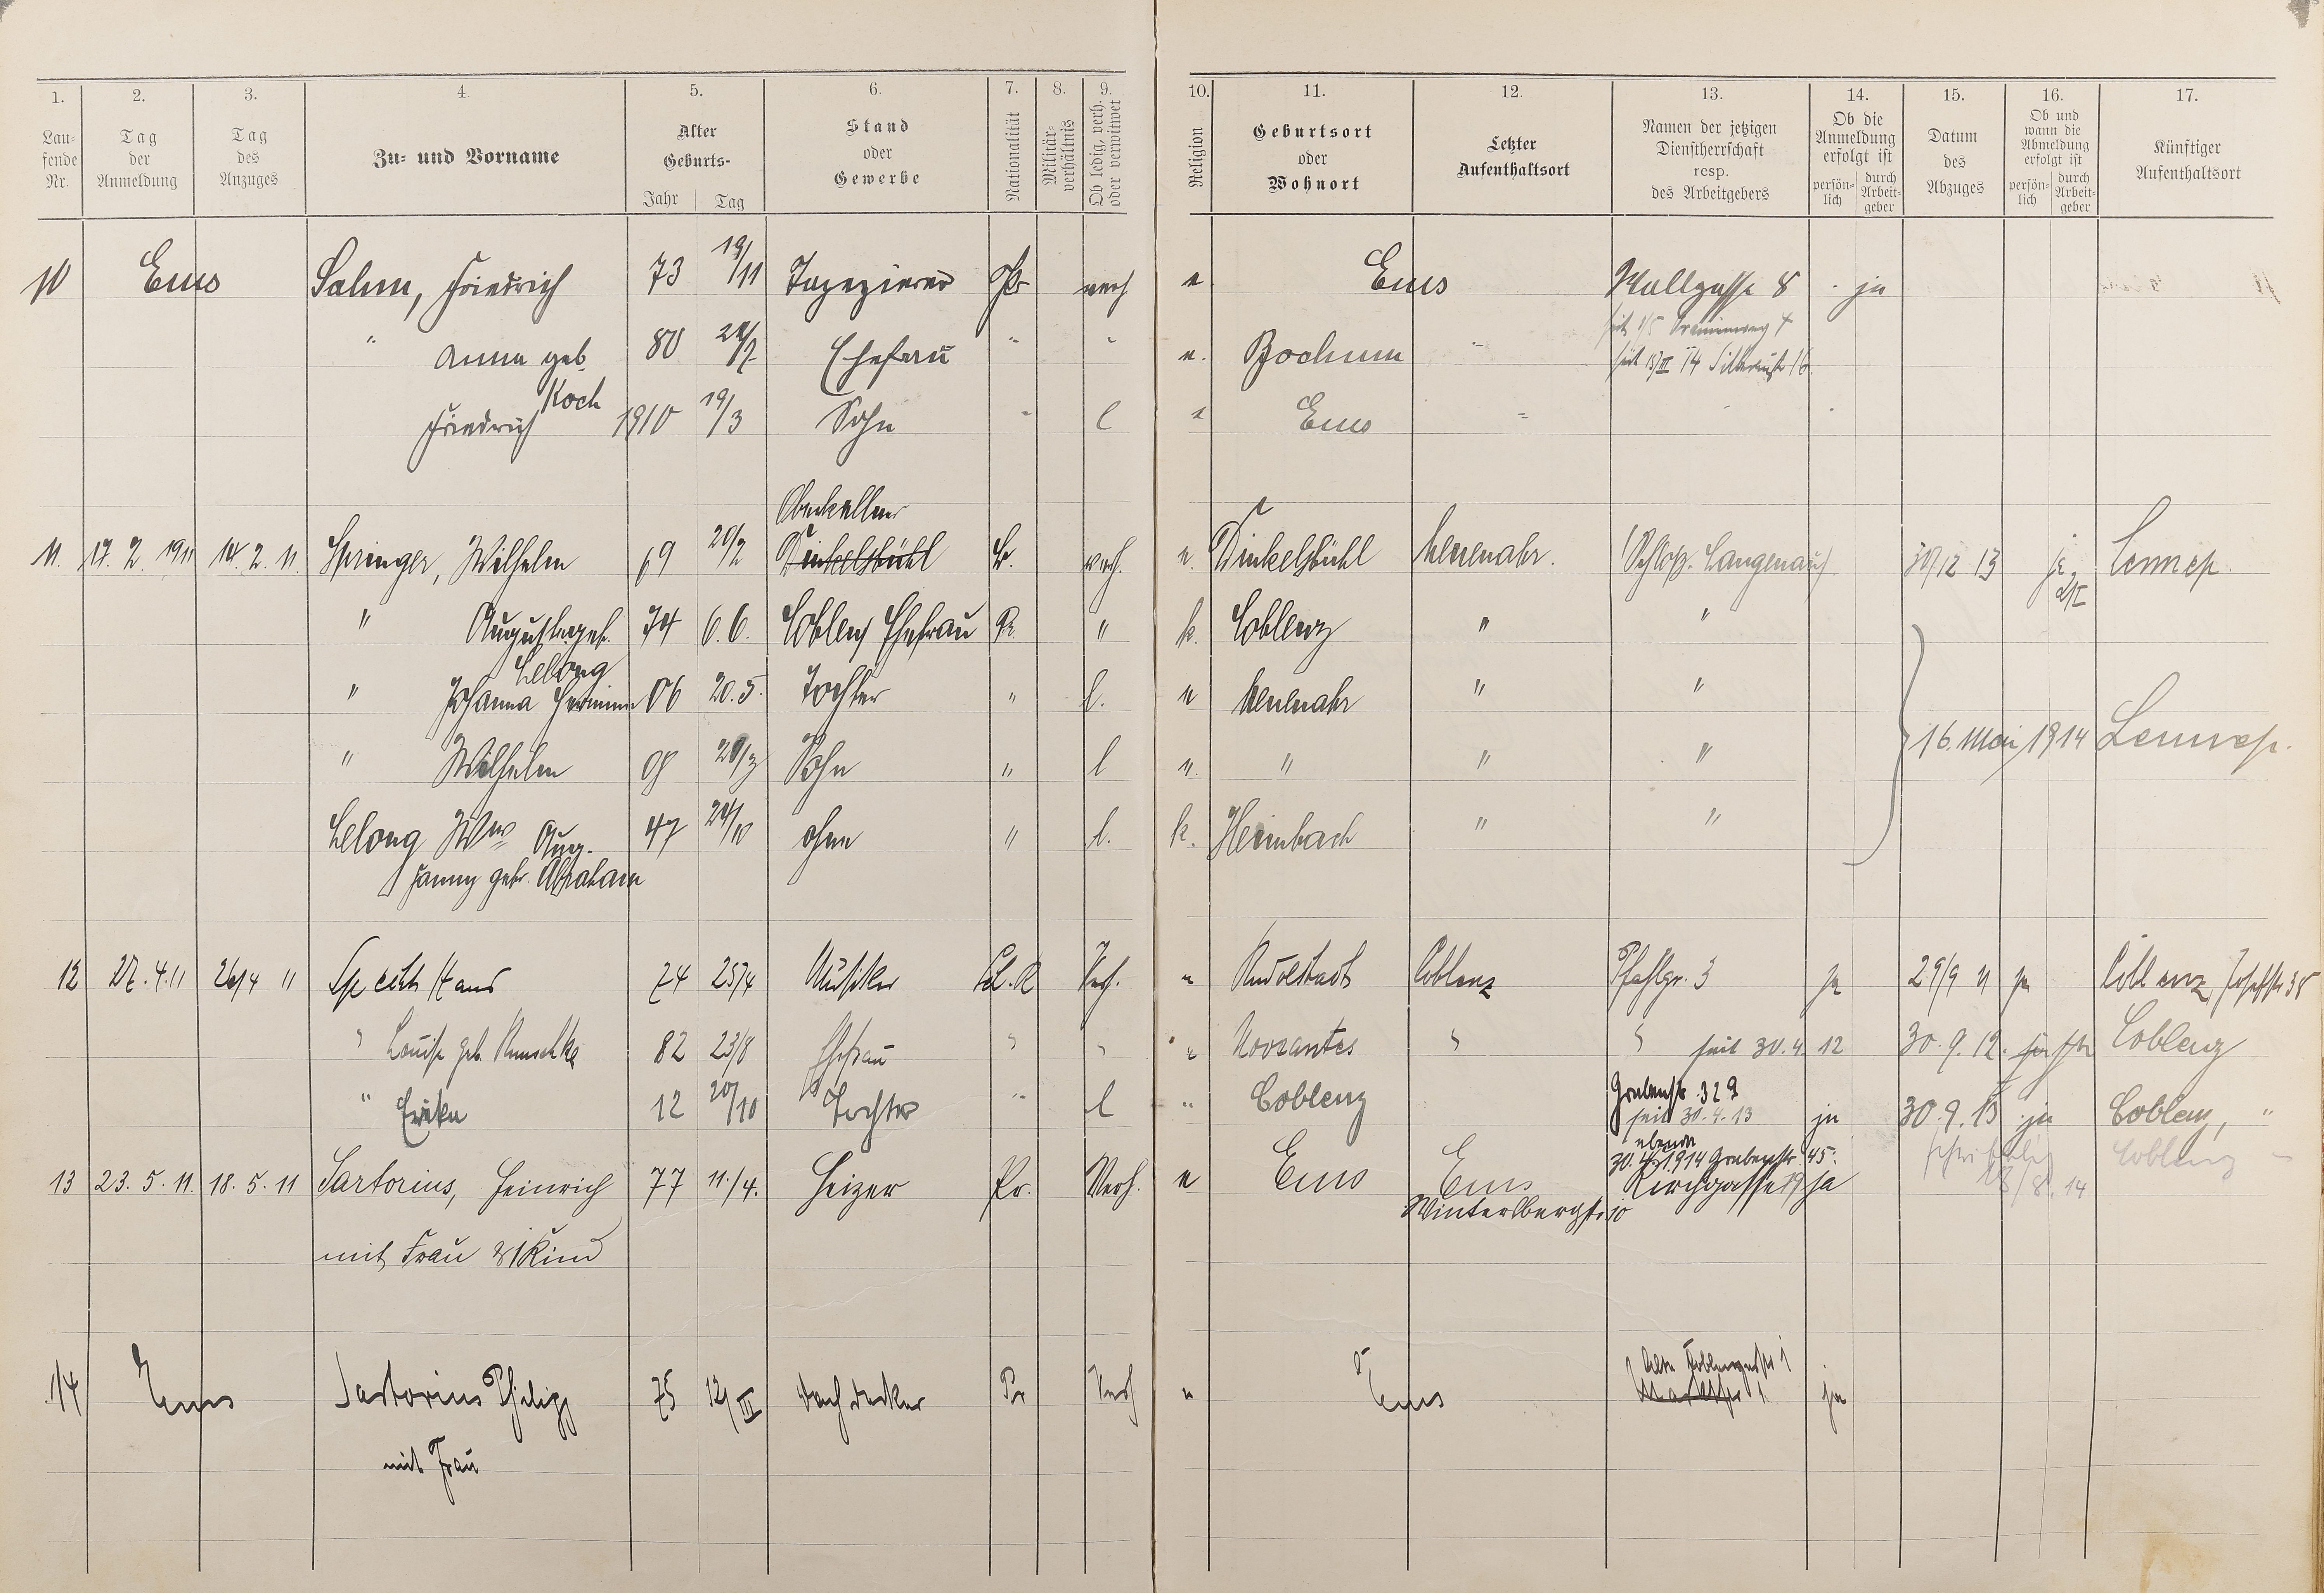 1. 2. 3. 4. 5. 6. 7. 8. 9. 10. 11. 12. 13. 14. 15. 16. 17.
Lau-
fende
Nr.
Tag
der
Anmeldung
Tag
des
Anzuges
Zu- und Vorname
Alter
Geburts-
Jahr Tag
Stand
oder
Gewerbe
Nationalität
Militär-
verhältnis
Ob ledig, verh.
oder verwitwet
Religion
Geburtsort
oder
Wohnort
Letzter
Aufenthaltsort
Namen der jetzigen
Dienstherrschaft
resp.
des Arbeitgebers
Ob die
Anmeldung
erfolgt ist
persön-
lich
durch
Arbeit-
geber
Datum
des
Abzuges
Ob und
wann die
Abmeldung
erfolgt ist
persön-
lich
durch
Arbeit-
geber
Künftiger
Aufenthaltsort
10 Ems Salm, Friedrich 73 19/11 Tapezierer Pr verh e Ems Wallgasse 8 ja
" Anna geb. 80 Ehefrau " " e. Bochum
Koch
Friedrich 1910 19/3 Sohn " l e Ems
Oberkellner
11. 17. 2. 1911 14. 2. 11. Springer, Wilhelm 69 20/2 Dinkelsbühl verh. e. Dinkelsbühl Neuenahr. Schloß Langenau 30/12 13 ja. Lennep.
" Auguste geb. 74 6. 6. Coblenz Ehefrau Pr. " k. Coblenz " "
Lelong
" Johanna 06 20. 5. Tochter " l. e Neuenahr " "
" Wilhelm 08 Sohn " l e. " " " 16. Mai 1914 Lennep.
Lelong Wwe Aug. 47 24/10 ohne " l. k. Heimbach " "
Fanny geb. Abraham
12 27. 4. 11 26/4 11 Specht Hans 74 25/4 Musiker Verh. e Rudolstadt Coblenz Pfahlgr. 3 ja 29/9 11 ja Coblenz, Josefstr 38
" Louise geb. 82 23/8 Ehefrau " " e " " seit 30. 4. 12 30. 9. 12. Coblenz
" Erika 12 20/10 Tochter " l " Coblenz Grabenstr. 32 a
seit 30. 4. 13 ja 30. 9. 13 ja Coblenz, "
ebenda
30. 4. 1914 Grabenstr. 45. Coblenz
13 23. 5. 11. 18. 5. 11 Sartorius, Heinrich 77 11./4. Heizer Pr. Verh. e Ems Ems Kirchgasse 19 ja 18/8. 14
Wintersbergstr. 10
mit Frau & 1 Kind
14 Ems Sartorius Philipp 75 12/III Dachdecker Pr Verh e Ems Alte Coblenzerstr 1
ja
mit Frau